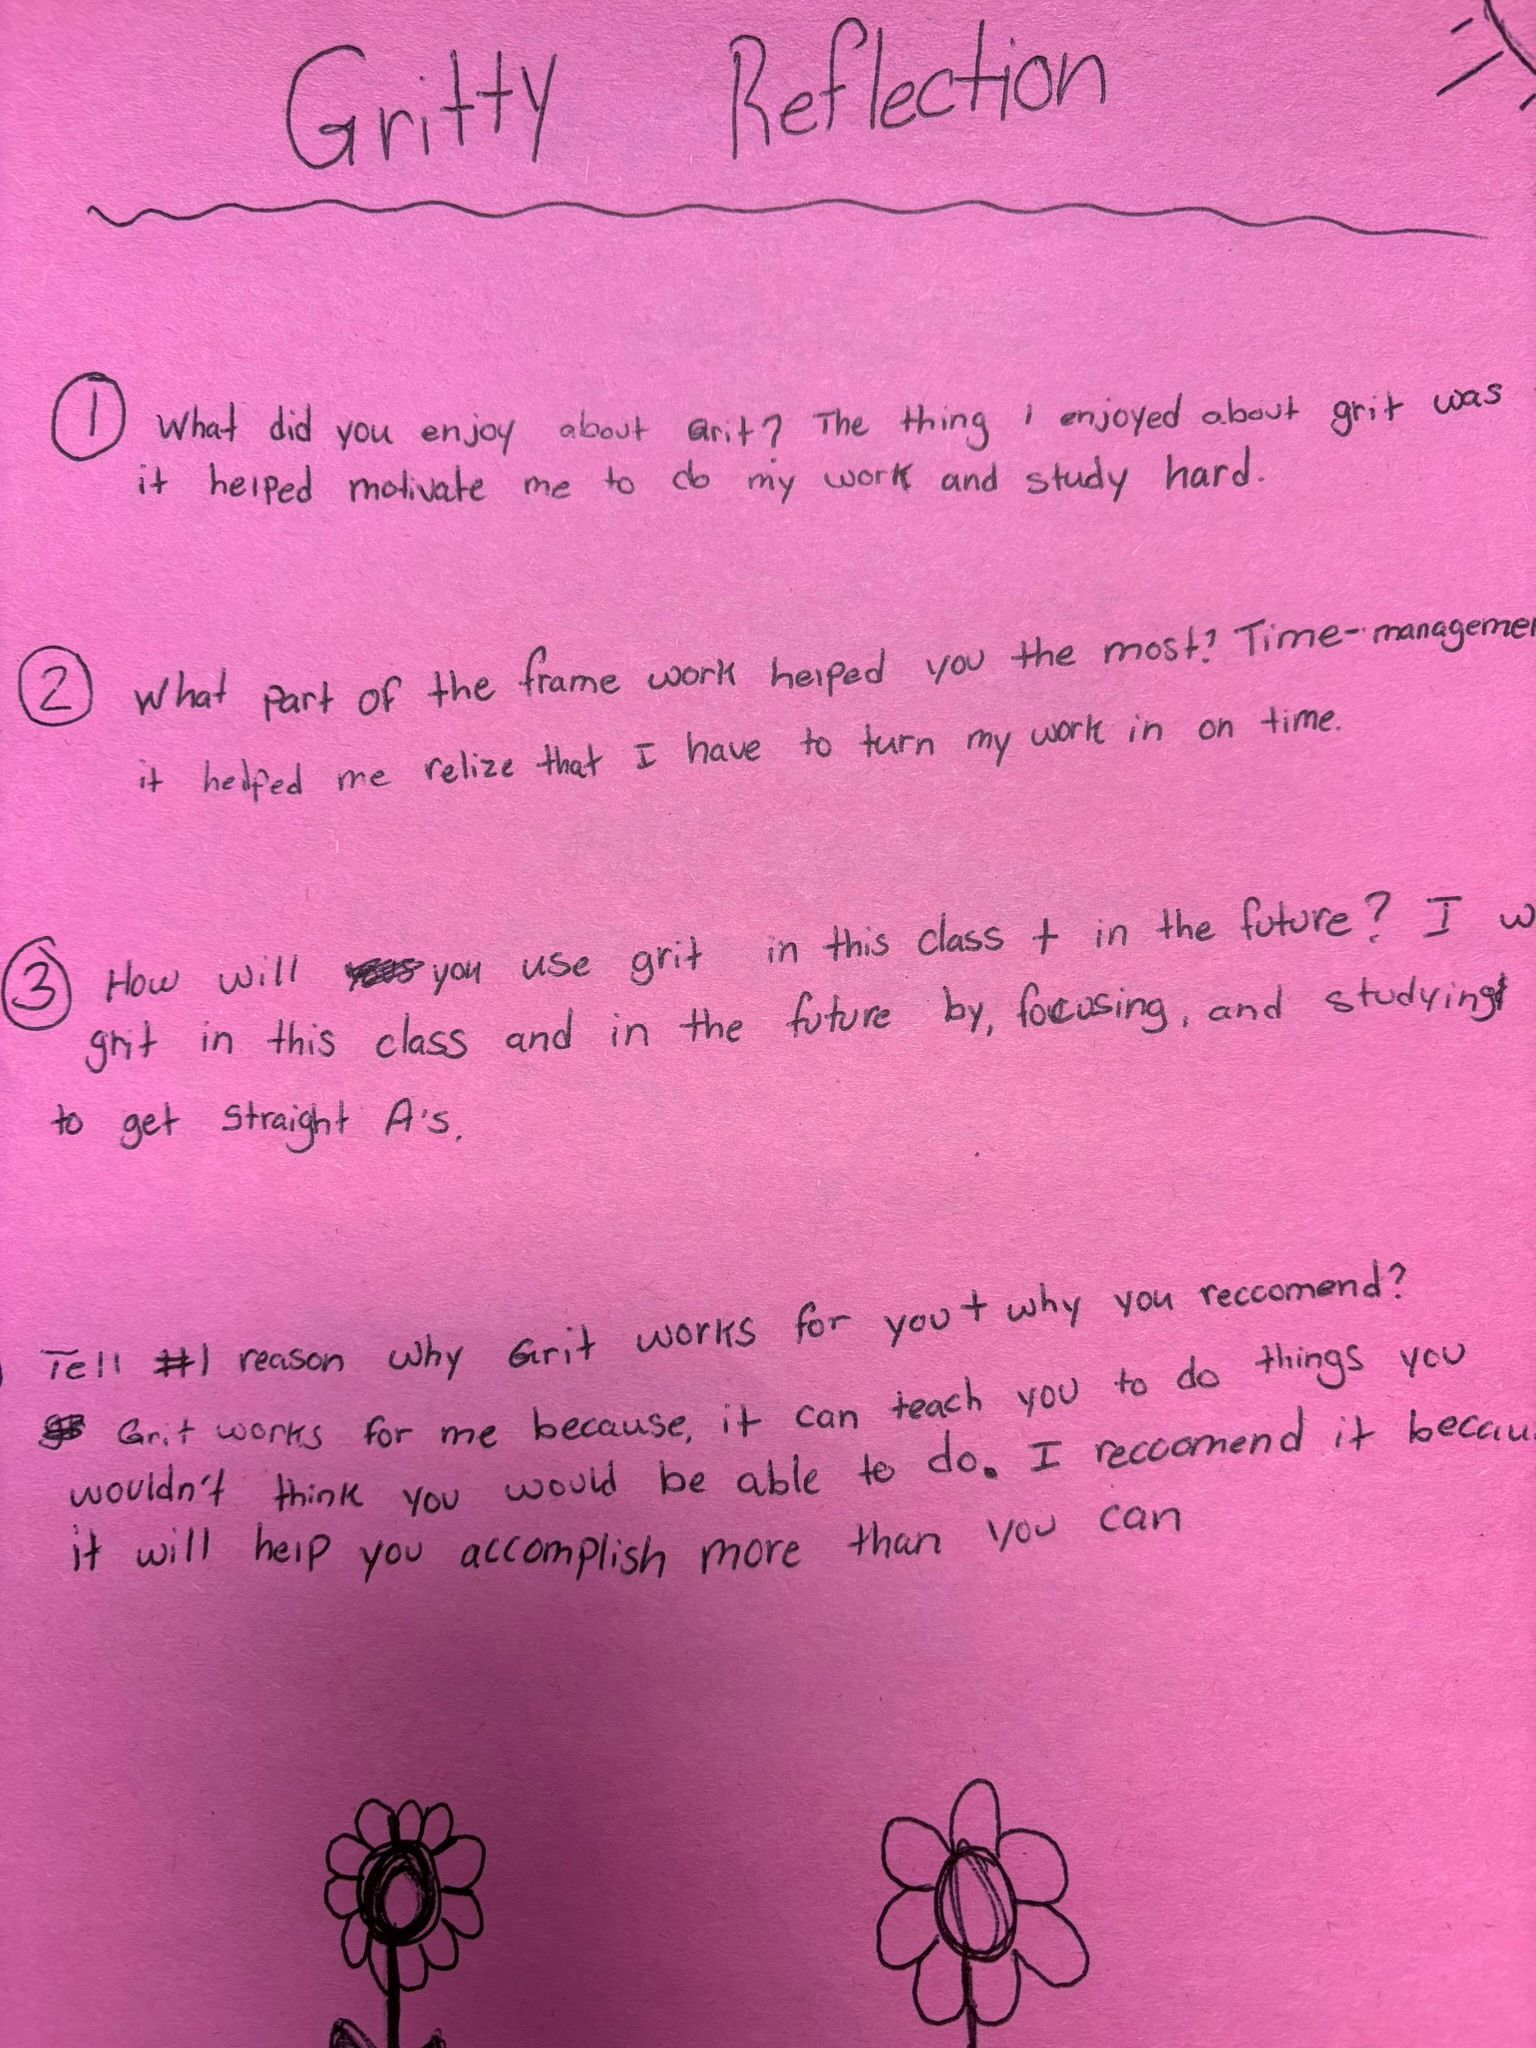 Gritty Reflection
1 What did you enjoy about Grit? The thing i enjoyed about grit was
it helped motivate me to do my work and study hard.
2 What part of the frame work helped you the most? Time-managemen
it helped me relize that I have to turn my work in on time.
3 How will you use grit in this class + in the future? I w
grit in this class and in the future by, focusing, and studying
to get straight A's.
Tell #1 reason why Grit works for you + why you reccomend?
Grit works for me because, it can teach you to do things you
wouldn't think you would be able to do. I reccomend it becau
it will help you accomplish more than you can